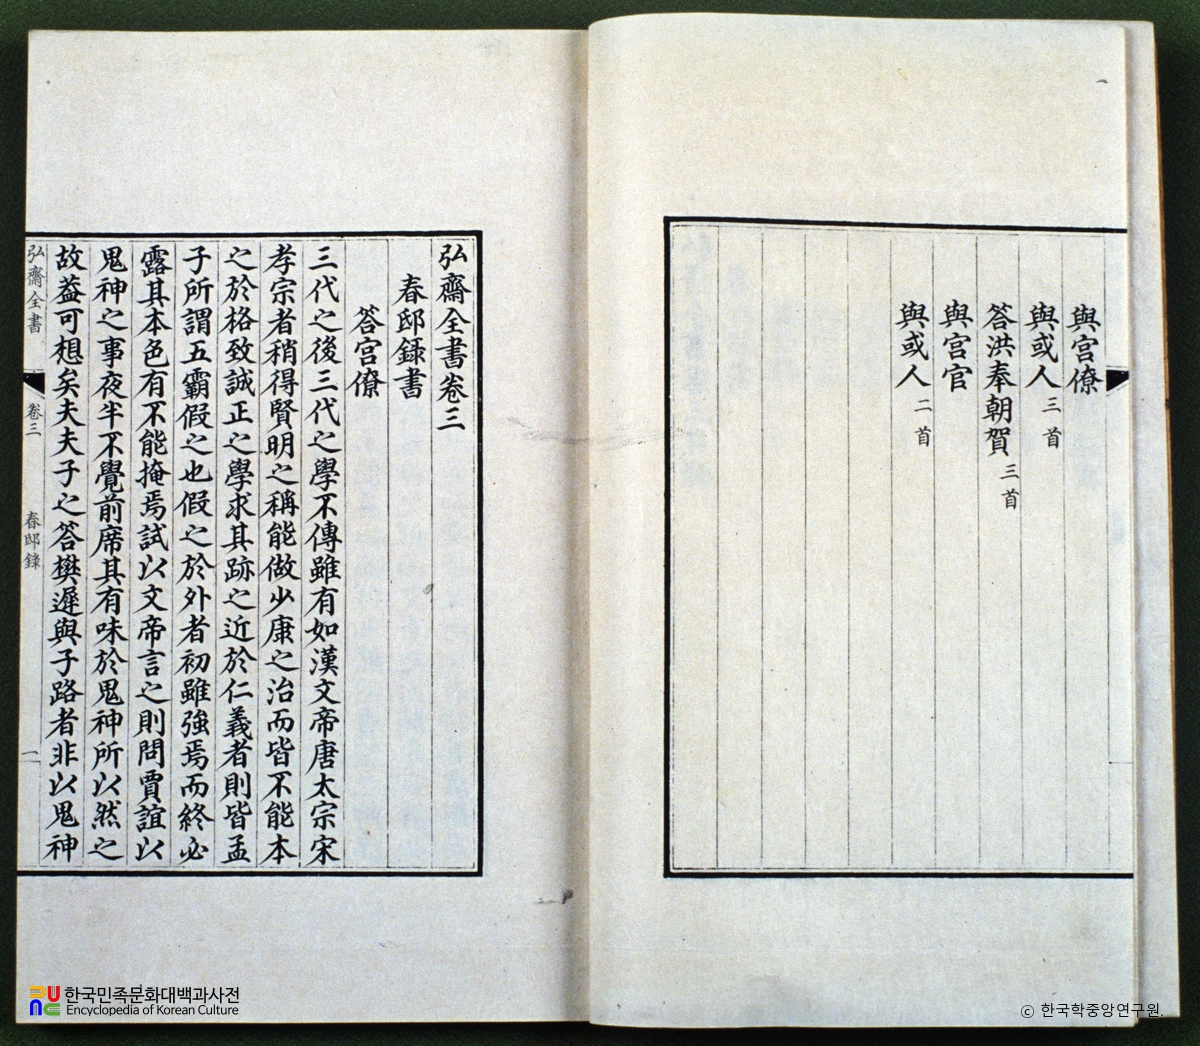 與宮僚
與或人三首
答洪奉朝賀三首
與宮官
與或人二首
弘齋全書卷三
春邸錄書
答宮僚
三代之後三代之學不傳雖有如漢文帝唐太宗宋
孝宗者稍得賢明之稱能做少康之治而皆不能本
之於格致誠正之學求其跡之近於仁義者則皆孟
子所謂五霸假之也假之於外者初雖強焉而終必
露其本色有不能掩焉試以文帝言之則問賈誼以
鬼神之事夜半不覺前席其有味於鬼神所以然之
故葢可想矣夫夫子之答樊遲與子路者非以鬼神
弘齋全書 卷三 春邸錄 一
한국민족문화대백과사전
Encyclopedia of Korean Culture
ⓒ 한국학중앙연구원.